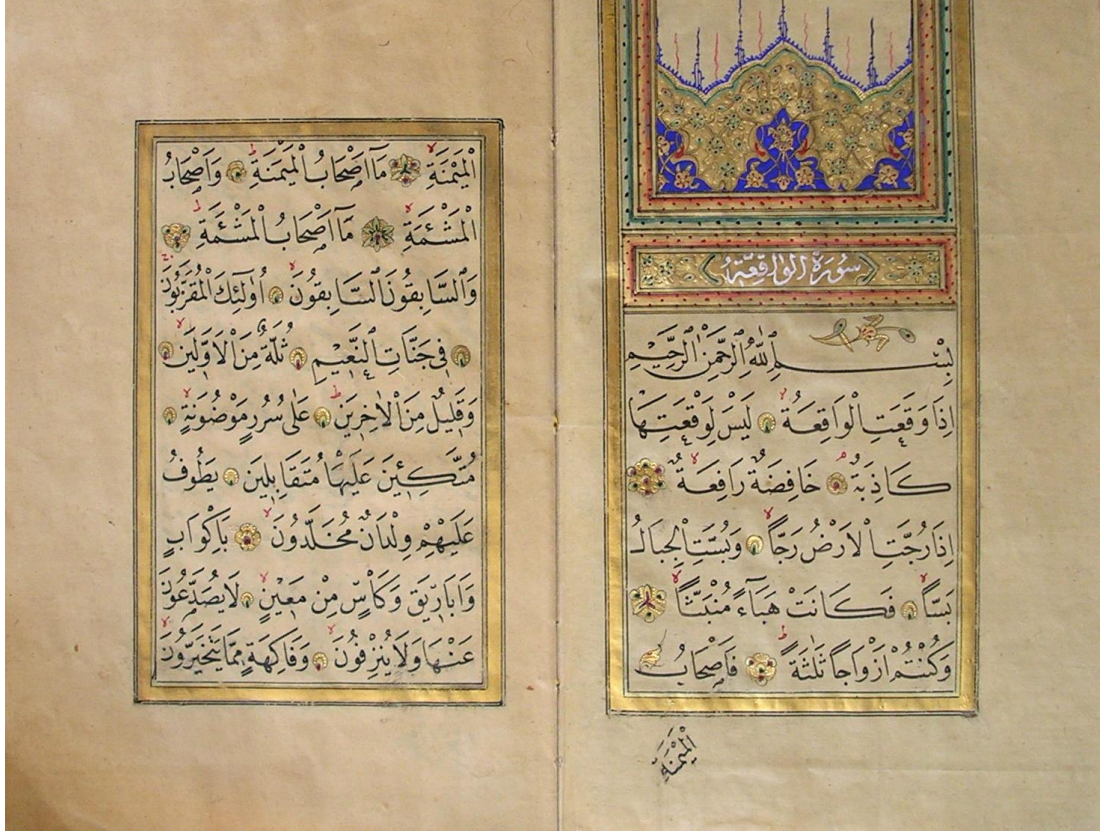 سُورَةُ الْوَاقِعَةِ
بِسْمِ اللّٰهِ الرَّحْمٰنِ الرَّحِيمِ
اِذَا وَقَعَتِ الْوَاقِعَةُ لَيْسَ لِوَقْعَتِهَا
كَاذِبَةٌ خَافِضَةٌ رَافِعَةٌ
اِذَا رُجَّتِ الْاَرْضُ رَجًّا وَبُسَّتِ الْجِبَالُ
بَسًّا فَكَانَتْ هَبَآءً مُنْبَثًّا
وَكُنْتُمْ اَزْوَاجًا ثَلٰثَةً فَاَصْحَابُ
الْمَيْمَنَةِ
الْمَيْمَنَةِ مَآ اَصْحَابُ الْمَيْمَنَةِ وَاَصْحَابُ
الْمَشْئَمَةِ مَآ اَصْحَابُ الْمَشْئَمَةِ
وَالسَّابِقُونَ السَّابِقُونَ اُولٰٓئِكَ الْمُقَرَّبُونَ
فِى جَنَّاتِ النَّعِيمِ ثُلَّةٌ مِنَ الْاَوَّلِينَ
وَقَلِيلٌ مِنَ الْاٰخِرِينَ عَلٰى سُرُرٍ مَوْضُونَةٍ
مُتَّكِـِٔينَ عَلَيْهَا مُتَقَابِلِينَ يَطُوفُ
عَلَيْهِمْ وِلْدَانٌ مُخَلَّدُونَ بِاَكْوَابٍ
وَاَبَارِيقَ وَكَاْسٍ مِنْ مَعِينٍ لَا يُصَدَّعُونَ
عَنْهَا وَلَا يُنْزِفُونَ وَفَاكِهَةٍ مِمَّا يَتَخَيَّرُونَ